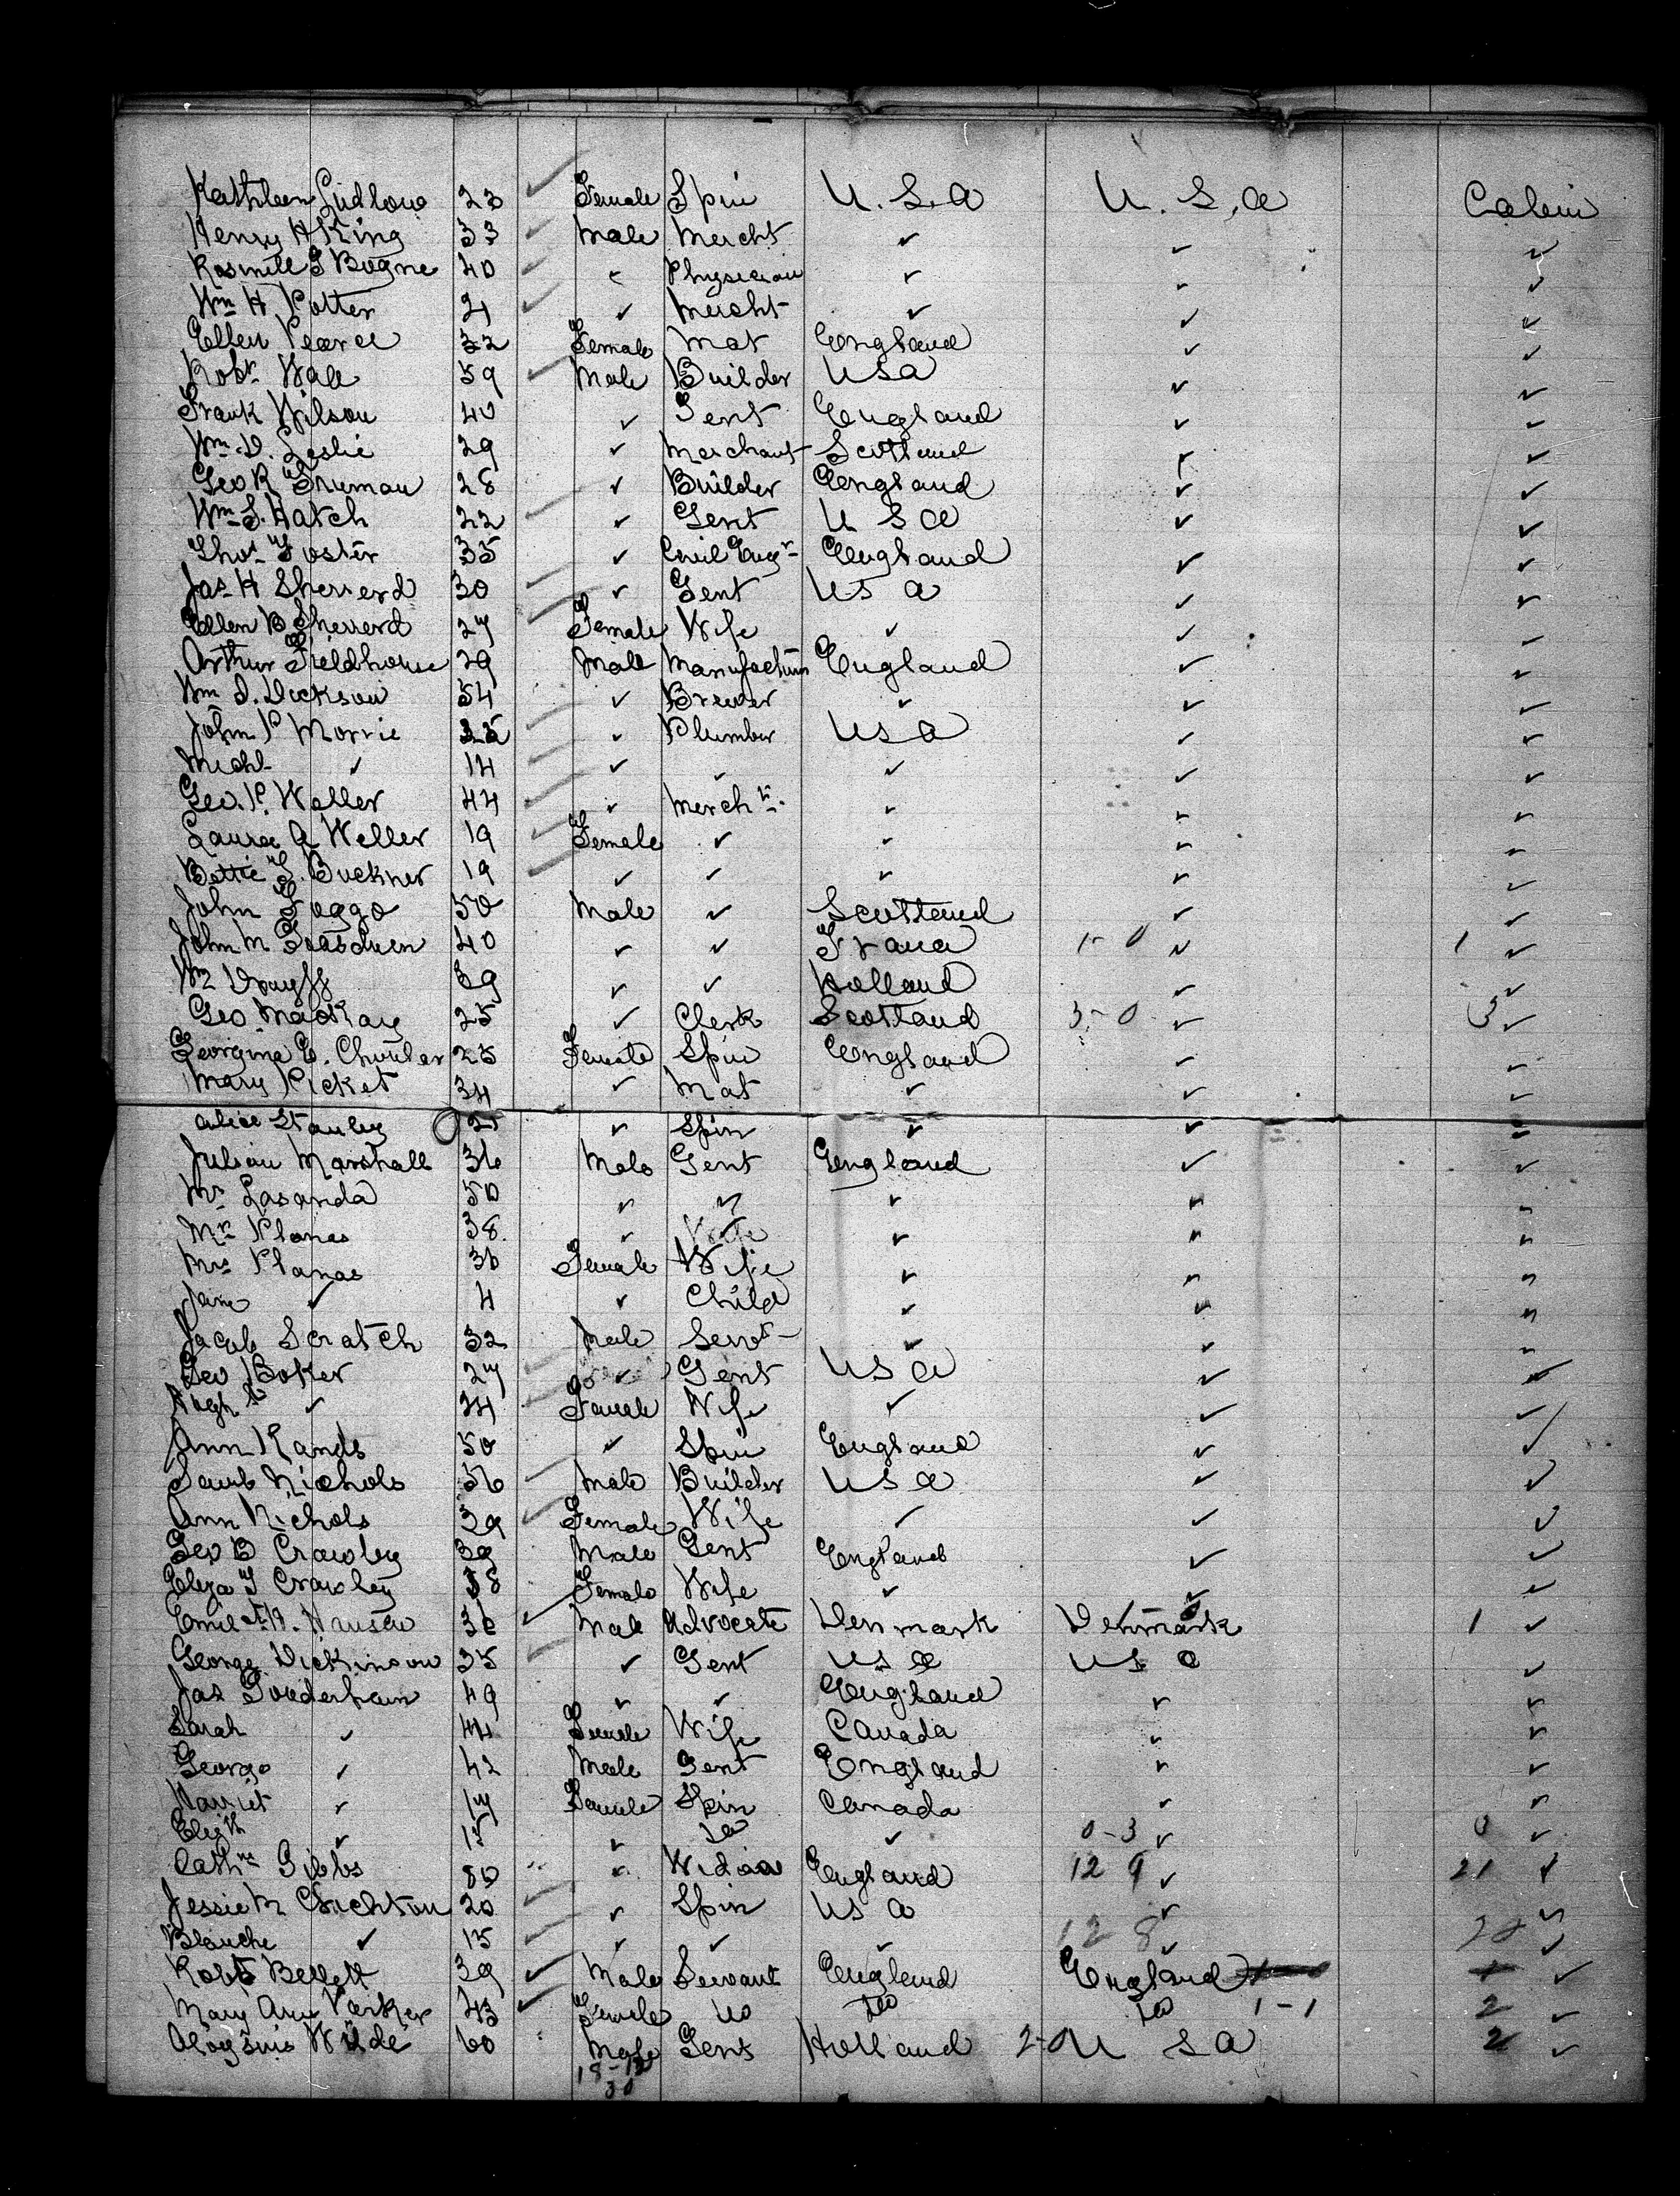 Kathleen Ludlow 23 ✓ Female Spin U.S.A U.S.A Cabin
Henry H King 33 ✓ Male Mercht ✓ ✓ ✓
40 ✓ ✓ Physician ✓ ✓ ✓
Wm H Potter 21 ✓ ✓ Mercht ✓ ✓ ✓
Ellen Pearce 32 Female Mat England ✓ ✓
Robt Wall 59 ✓ Male Builder USA ✓ ✓
Frank Wilson 40 ✓ Gent England ✓ ✓
Wm D. Leslie 29 ✓ Merchant Scotland ✓ ✓
Geo R Truman 28 ✓ Builder England ✓ ✓
Wm S. Hatch 22 ✓ ✓ Gent U S A ✓ ✓
Thos Foster 35 ✓ Civil Engr England ✓ ✓
Jas H Sherrerd 30 ✓ ✓ Gent US A ✓ ✓
Ellen B Sherrerd 27 ✓ Female Wife ✓ ✓ ✓
Arthur Fieldhouse 29 Male Manufacturer England ✓ ✓
Wm D. Dickson 54 ✓ Brewer ✓ ✓ ✓
John P Morris ✓ ✓ Plumber USA ✓ ✓
Michl ✓ 14 ✓ ✓ ✓ ✓ ✓ ✓
Geo. P. Weller 44 ✓ ✓ Mercht. ✓ ✓ ✓
Laura A Weller 19 ✓ Female ✓ ✓ ✓ ✓
Bettie F. Buckner 19 ✓ ✓ ✓ ✓ ✓ ✓
John Foggo 50 Male ✓ Scotland ✓ ✓
John M 40 ✓ ✓ France 1-0 ✓ 1 ✓
Wm 39 ✓ ✓ Holland ✓ ✓
Geo. MacKay 25 ✓ Clerk Scotland 3-0 ✓ 3 ✓
Georgina E. 25 Female Spin England ✓ ✓
Mary Picket 34 ✓ Mat ✓ ✓ ✓
Alice Stanley 25 ✓ Spin ✓ ✓ ✓
Julian Marshall 36 Male Gent England ✓ ✓
Mr Lasanda 50 ✓ ✓ ✓ ✓ ✓
Mr Planas 38 ✓ ✓ ✓ ✓ ✓
Mrs Planas 36 Female Wife ✓ ✓ ✓
Jane ✓ 4 ✓ Child ✓ ✓ ✓
Jacob Scratch 32 Male Servt ✓ ✓ ✓
Geo Boker 27 ✓ ✓ Gent US A ✓ ✓
✓ 24 ✓ Female Wife ✓ ✓ ✓
Ann Rands 50 ✓ Spin England ✓ ✓
Saml Nichols 56 ✓ Male Builder U S A ✓ ✓
Ann Nichols 39 ✓ Female Wife ✓ ✓ ✓
Geo B Crawley 39 Male Gent England ✓ ✓
Eliza T Crawley 38 Female Wife ✓ ✓ ✓
Hansen 36 ✓ Male Advocate Denmark Denmark 1 ✓
George Dickinson 25 ✓ ✓ Gent US A US A ✓
Jas Gooderham 49 ✓ ✓ England ✓ ✓
Sarah ✓ 44 Female Wife Canada ✓ ✓
George ✓ 42 Male Gent England ✓ ✓
Harriet ✓ 17 Female Spin Canada ✓ ✓
Elizth ✓ 15 ✓ Do ✓ 0-3 ✓ ✓
Cathne Gibbs 80 ✓ Widow England 12 9 ✓ 21 ✓
Jessie M Crichton 20 ✓ ✓ Spin US A ✓ ✓
Blanche ✓ 15 ✓ ✓ ✓ ✓ 12 8 ✓ 20 ✓
Robt Bellett 39 ✓ Male Servant England England ✓
Mary Ann Parker 43 ✓ Female Do Do Do 1-1 2 ✓
Aloysius Wilde 60 Male Gent Holland 2-0 U S A 2 ✓